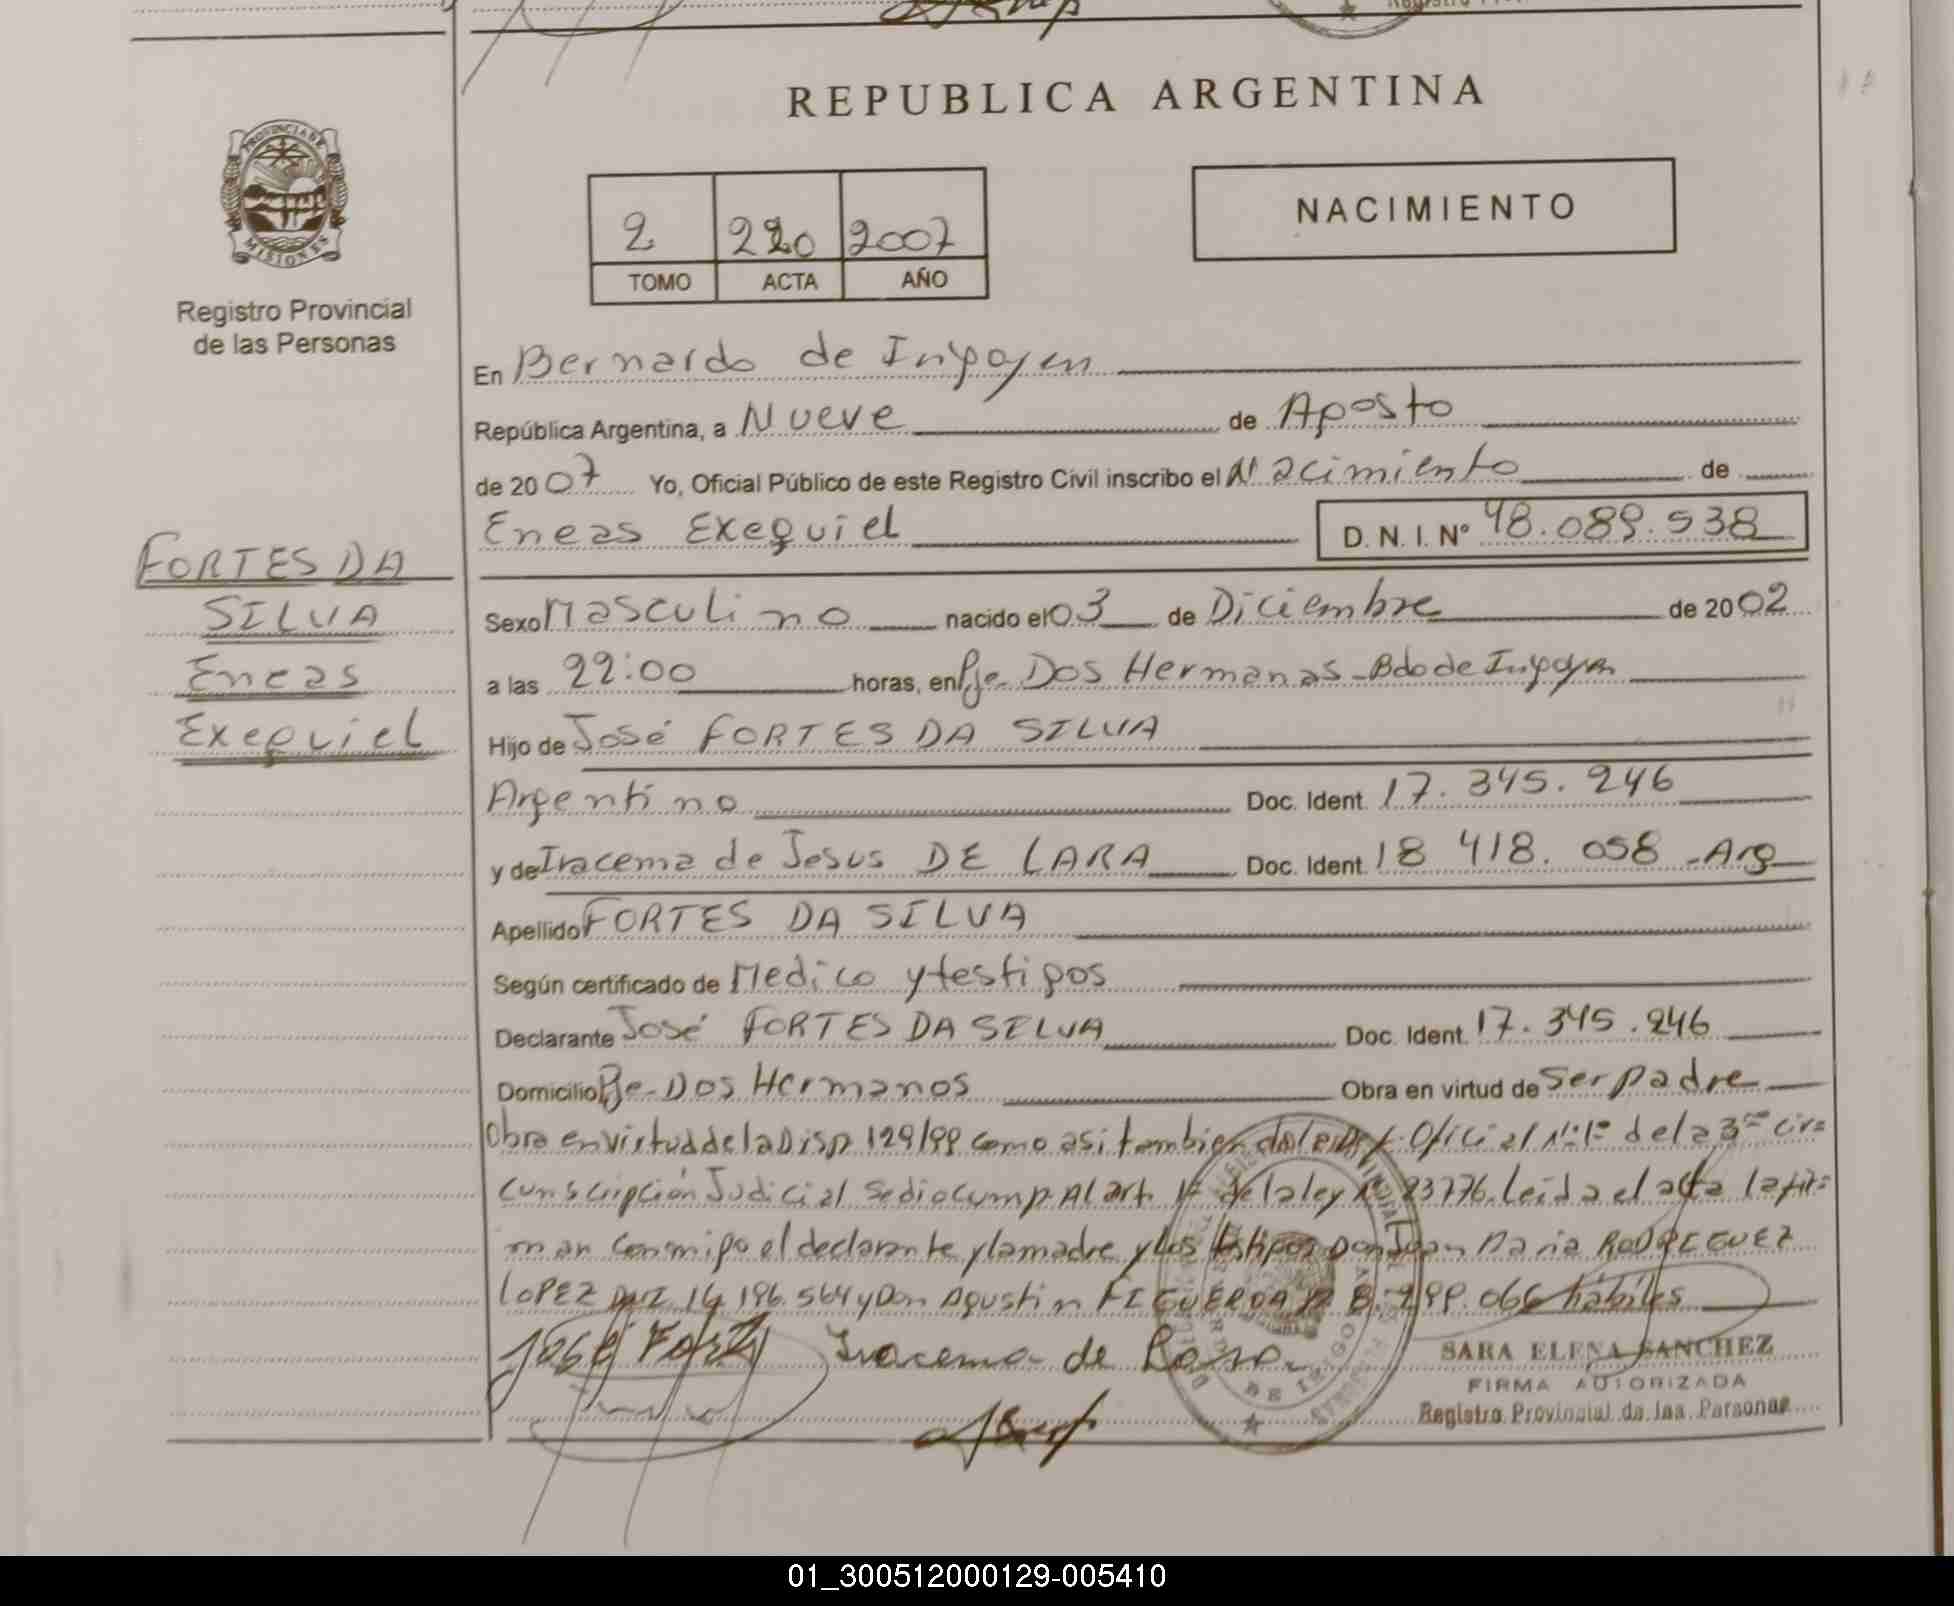 REPUBLICA ARGENTINA
PROVINCIA DE
MISIONES
Registro Provincial
de las Personas
2 220 2007
TOMO ACTA AÑO
NACIMIENTO
En Bernardo de Irigoyen
República Argentina, a Nueve de Agosto
de 2007 Yo, Oficial Público de este Registro Civil inscribo el Nacimiento de
Eneas Exequiel D. N. I. Nº 48.089.538
FORTES DA
SILVA
Eneas
Exequiel
Sexo Masculino nacido el 03 de Diciembre de 2002
a las 22:00 horas, en Pje Dos Hermanas - Bdo de Irigoyen
Hijo de José FORTES DA SILVA
Argentino Doc. Ident. 17.345.246
y de Iracema de Jesus DE LARA Doc. Ident. 18 418.058 - Arg
Apellido FORTES DA SILVA
Según certificado de Medico y testigos
Declarante José FORTES DA SILVA Doc. Ident. 17.345.246
Domicilio Pje - Dos Hermanos Obra en virtud de Ser padre
Obra en virtud de la Disp 129/99 como asi tambien Oficial Nº 1º de la 3ra cir=
cunscripción Judicial se dio cump. Al art. 1º de la ley Nº 23776. Leida el acta la fir=
man conmigo el declarante y la madre y los testigos Don Juan Maria RODRIGUEZ
LOPEZ DNI 14 196.564 y Don Agustin FIGUEROA 8.299.066 hábiles
José Fortes Iracema de Lara
SARA ELENA SANCHEZ
FIRMA AUTORIZADA
Registro Provincial de las Personas
01_300512000129-005410